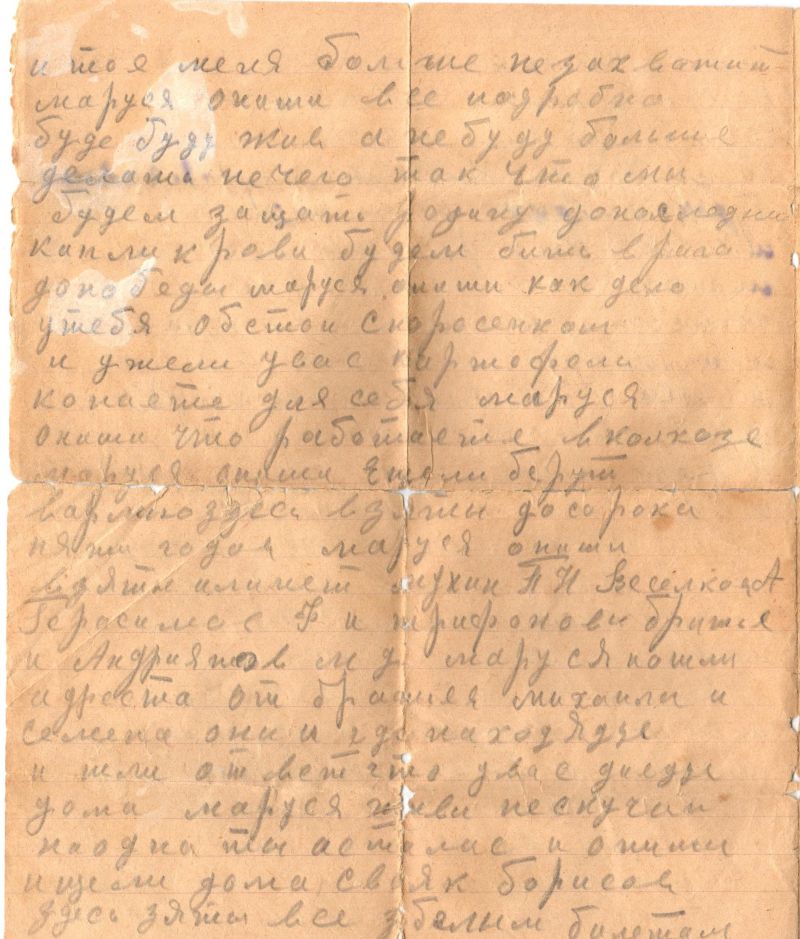 и тоя меня больше незахватит
маруся опиши все подробно
буде буду жив а небуду больше
делать нечего так что мы
будем защать родину допоследни
капли крови будем бить врага
допобеды маруся опиши как дело
утебя обстои споросенком
и ужели увас картофели
копаете для себя маруся
опиши что работаете вколхозе
маруся опиши ещели берут
вармию здесь взяты досорока
пяти годов маруся опиши
взяти илинет мухин П И Веселков А
Герасимов Ф и трифонови братя
и Андриянов м д маруся пошли
адреста от братея михаила и
семена они и где находядце
и шли ответ что увас дядце
дома маруся живи нескучай
неодна ты асталас и опиши
ищели дома сваяк борисов
здесь зяты все збелым билетам